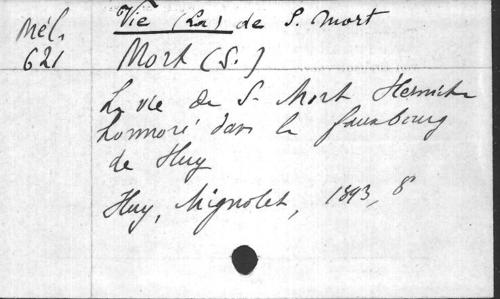 Mél. 621
Vie (La) de S. Mort
Mort (S.)
La vie de S. Mort Hermite
honnoré dans le fauxbourg
de Huy
Huy, Mignolet, 1893, 8°